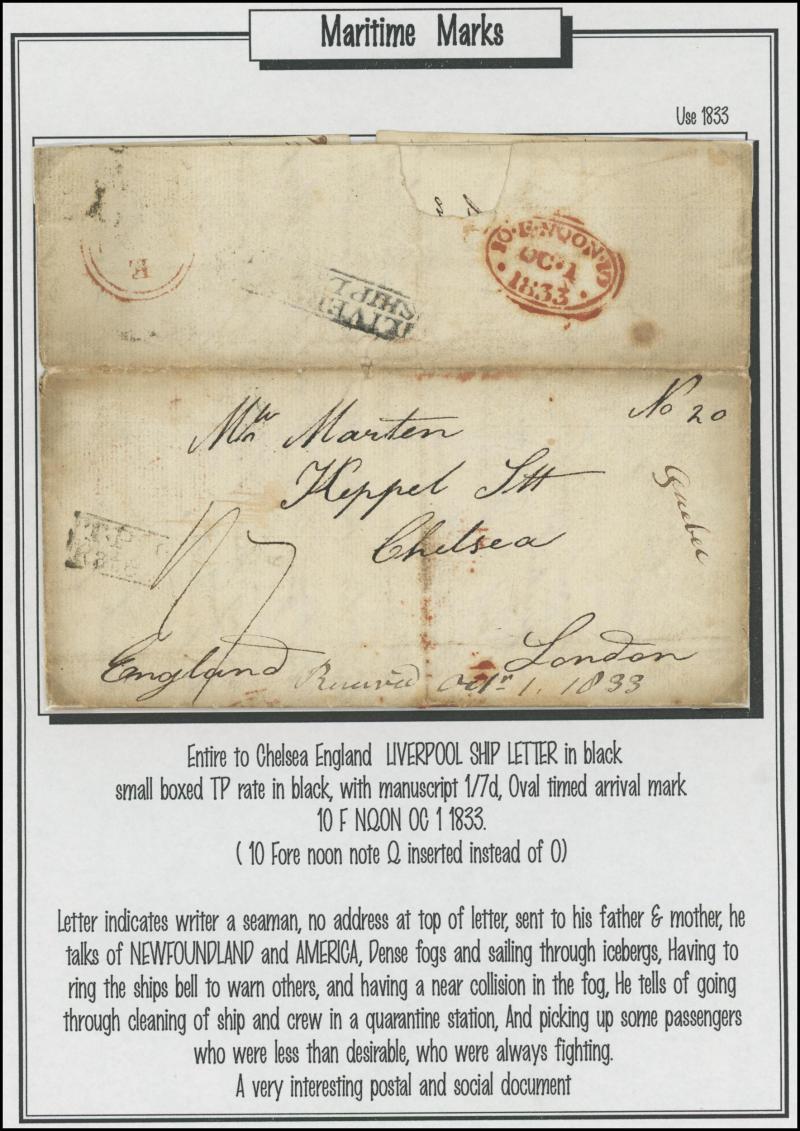 Maritime Marks
Use 1833
10·F·NQON·10
OC·1
1833
LIVER
SHIP L
No 20
Mr Marten
Keppel Stt
Chelsea
Quebec
T.P
Rate
1/7
London
England
Received Octr 1. 1833
Entire to Chelsea England LIVERPOOL SHIP LETTER in black
small boxed TP rate in black, with manuscript 1/7d, Oval timed arrival mark
10 F NQON OC 1 1833.
( 10 Fore noon note Q inserted instead of O)
Letter indicates writer a seaman, no address at top of letter, sent to his father & mother, he
talks of NEWFOUNDLAND and AMERICA, Dense fogs and sailing through icebergs, Having to
ring the ships bell to warn others, and having a near collision in the fog, He tells of going
through cleaning of ship and crew in a quarantine station, And picking up some passengers
who were less than desirable, who were always fighting.
A very interesting postal and social document